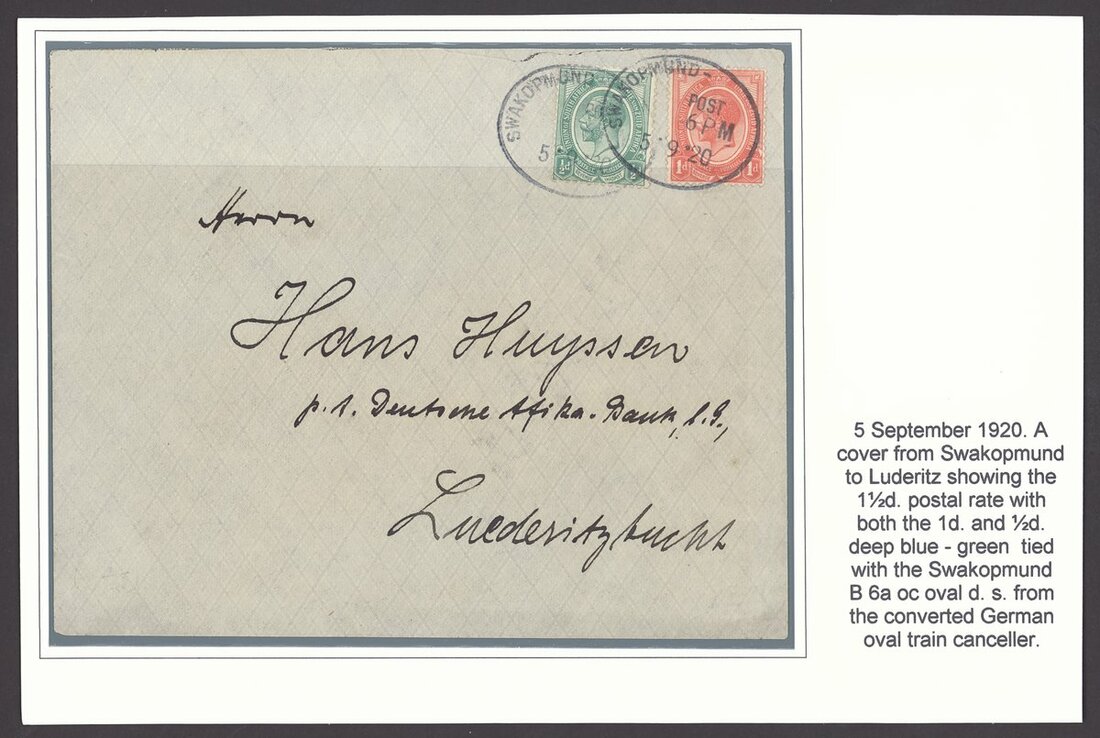 SWAKOPMUND
5
SWAKOPMUND-
POST
6 PM
5·9·20
½d
1d 1d
Herrn
Hans Huyssen
p. A. Deutsche Afrika-Bank, L.G.,
Luederitzbucht
5 September 1920. A
cover from Swakopmund
to Luderitz showing the
1½d. postal rate with
both the 1d. and ½d.
deep blue - green tied
with the Swakopmund
B 6a oc oval d. s. from
the converted German
oval train canceller.